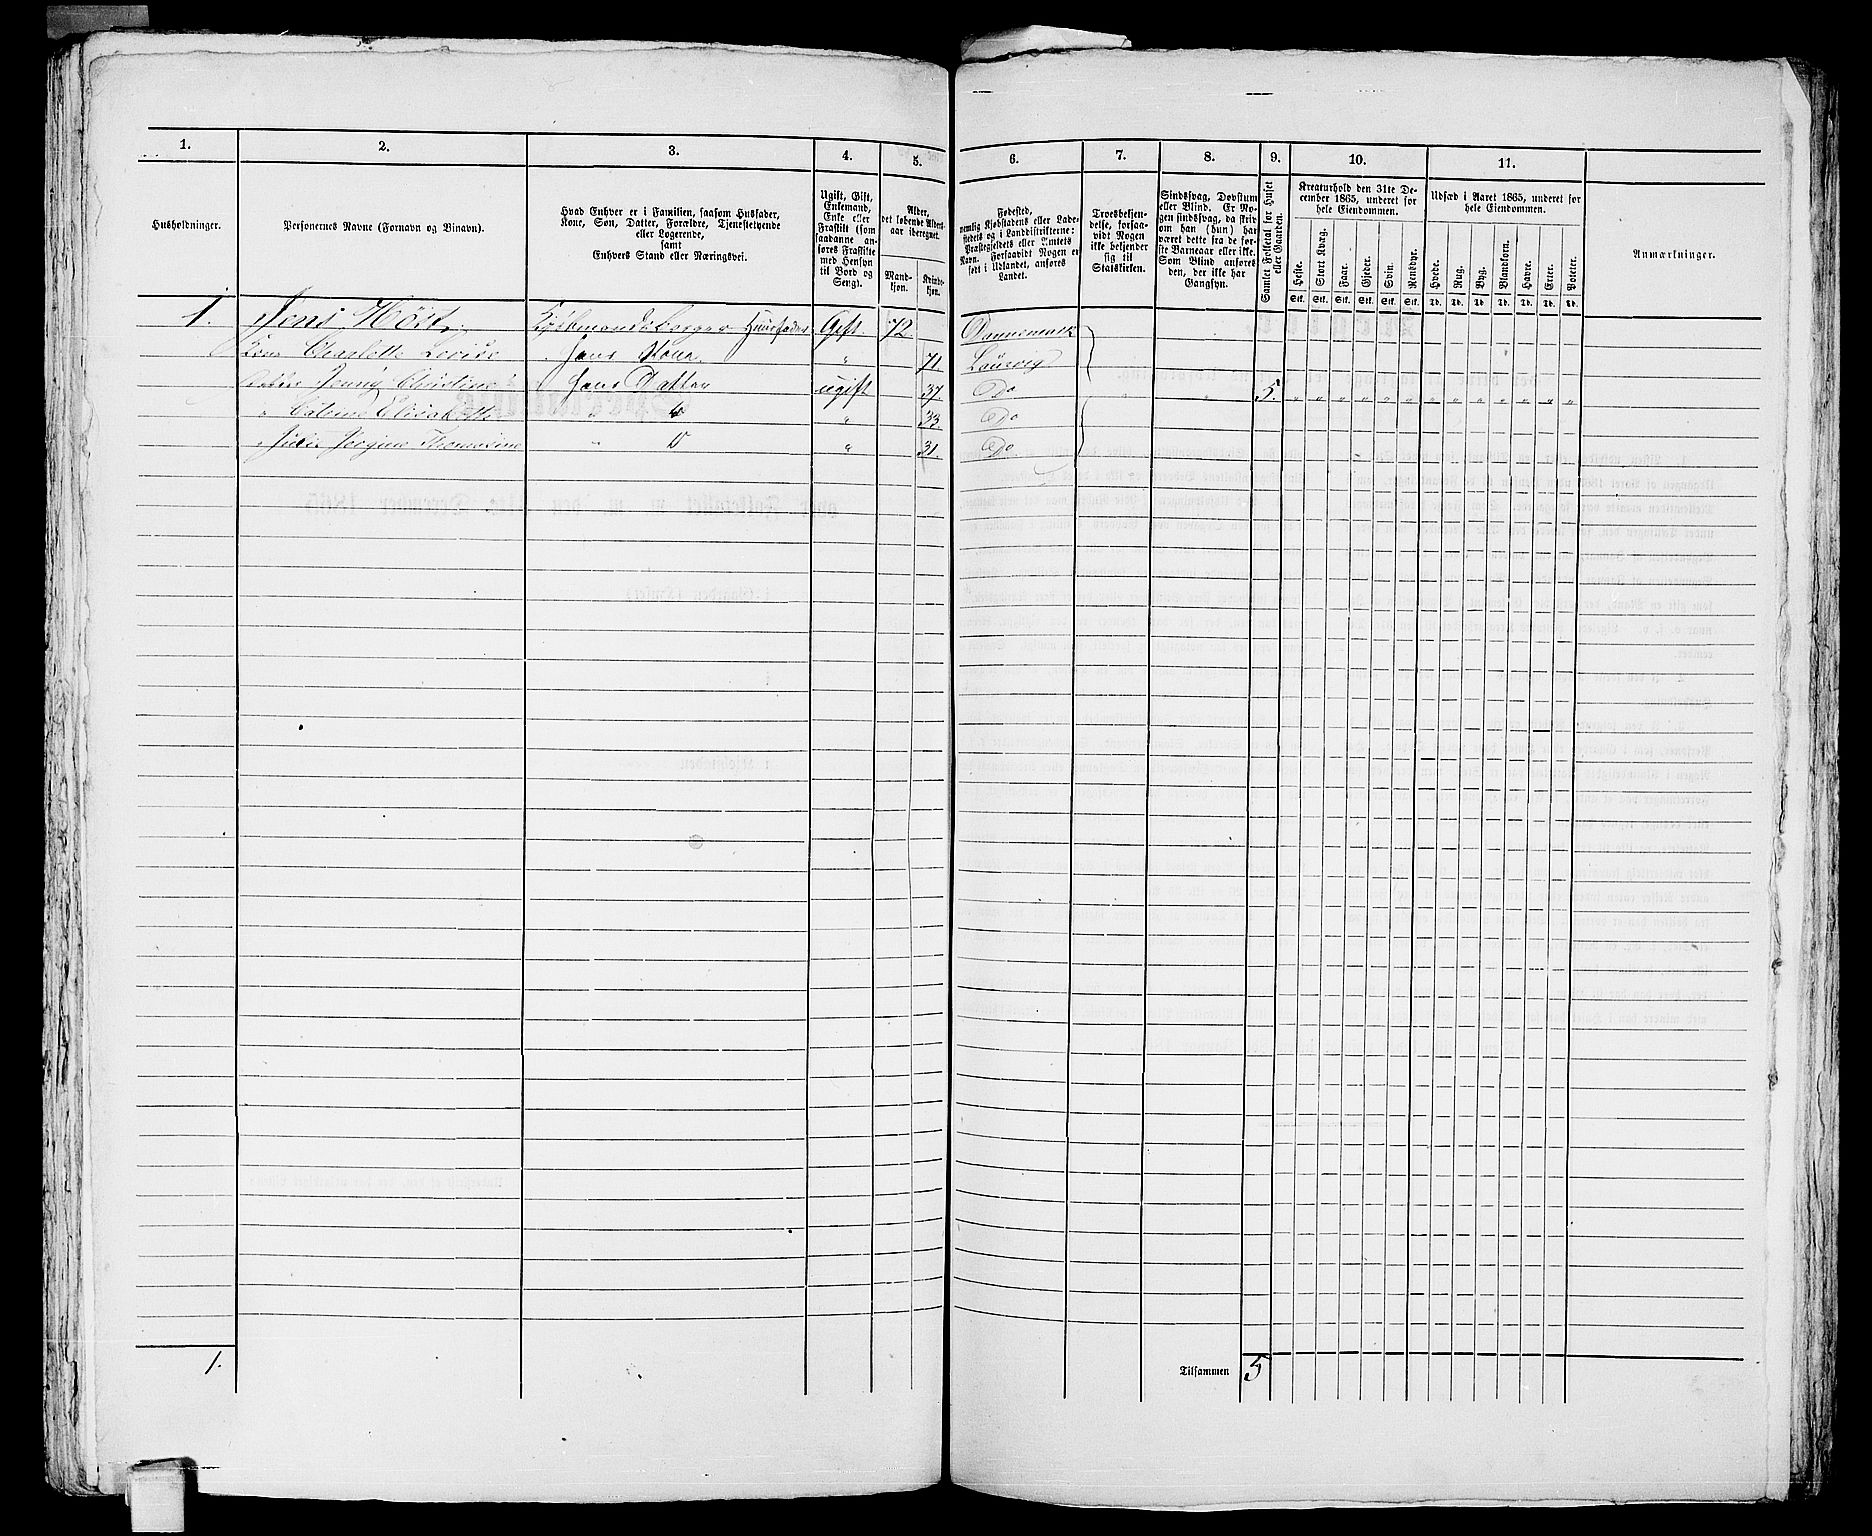 1.
2.
3.
4.
5.
6.
7.
8.
9.
10.
11.
Husholdninger.
Personernes Navne (Fornavn og Binavn).
Hvad Enhver er i Familien, saasom Husfader,
Kone, Søn, Datter, Forældre, Tjenestetyende
eller Logerende,
samt
Enhvers Stand eller Næringsvei.
Ugift, Gift,
Enkemand,
Enke eller
Fraskilt (som
saadanne an-
føres Fraskilte
med Hensyn
til Bord og
Seng).
Alder,
det løbende Alders-
aar iberegnet.
Mand-
kjøn.
Kvinde-
kjøn.
Fødested,
nemlig Kjøbstadens eller Lade-
stedets og i Landdistrikterne:
Præstegjeldets eller Amtets
Navn. Forsaavidt Nogen er
født i Udlandet, anføres
Landet.
Troesbekjen-
delse, forsaa-
vidt Nogen
ikke bekjender
sig til
Statskirken.
Sindssvag, Døvstum
eller Blind. Er No-
gen sindssvag, da skriv
om han (hun) har
været dette fra de før-
ste Barneaar eller ikke.
Som Blind anføres
den, der ikke har
Gangsyn.
Samlet Folketal for Huset
eller Gaarden.
Kreaturhold den 31te De-
cember 1865, underet for
hele Eiendommen.
Heste.
Stort Kvæg.
Faar.
Gjeder.
Svin.
Rensdyr.
Stk. Stk. Stk. Stk. Stk. Stk.
Udsæd i Aaret 1865, underet for
hele Eiendommen.
Hvede.
Rug.
Byg.
Blandkorn.
Havre.
Erter.
Poteter.
Td. Td. Td. Td. Td. Td. Td.
Anmærkninger.
1. Jens Høst Husfader Gift 72 Dannemark
Kone Charlotte Lovise Hans Kone " 71. Laurvig
Jenny Christine Hans Datter ugift 37. Do 5. " " " " " " " " " " " " "
" Elisabeth " D " 33 Do
" Julie Jorgine Thomasine " D " 31. Do
1.
Tilsammen 5